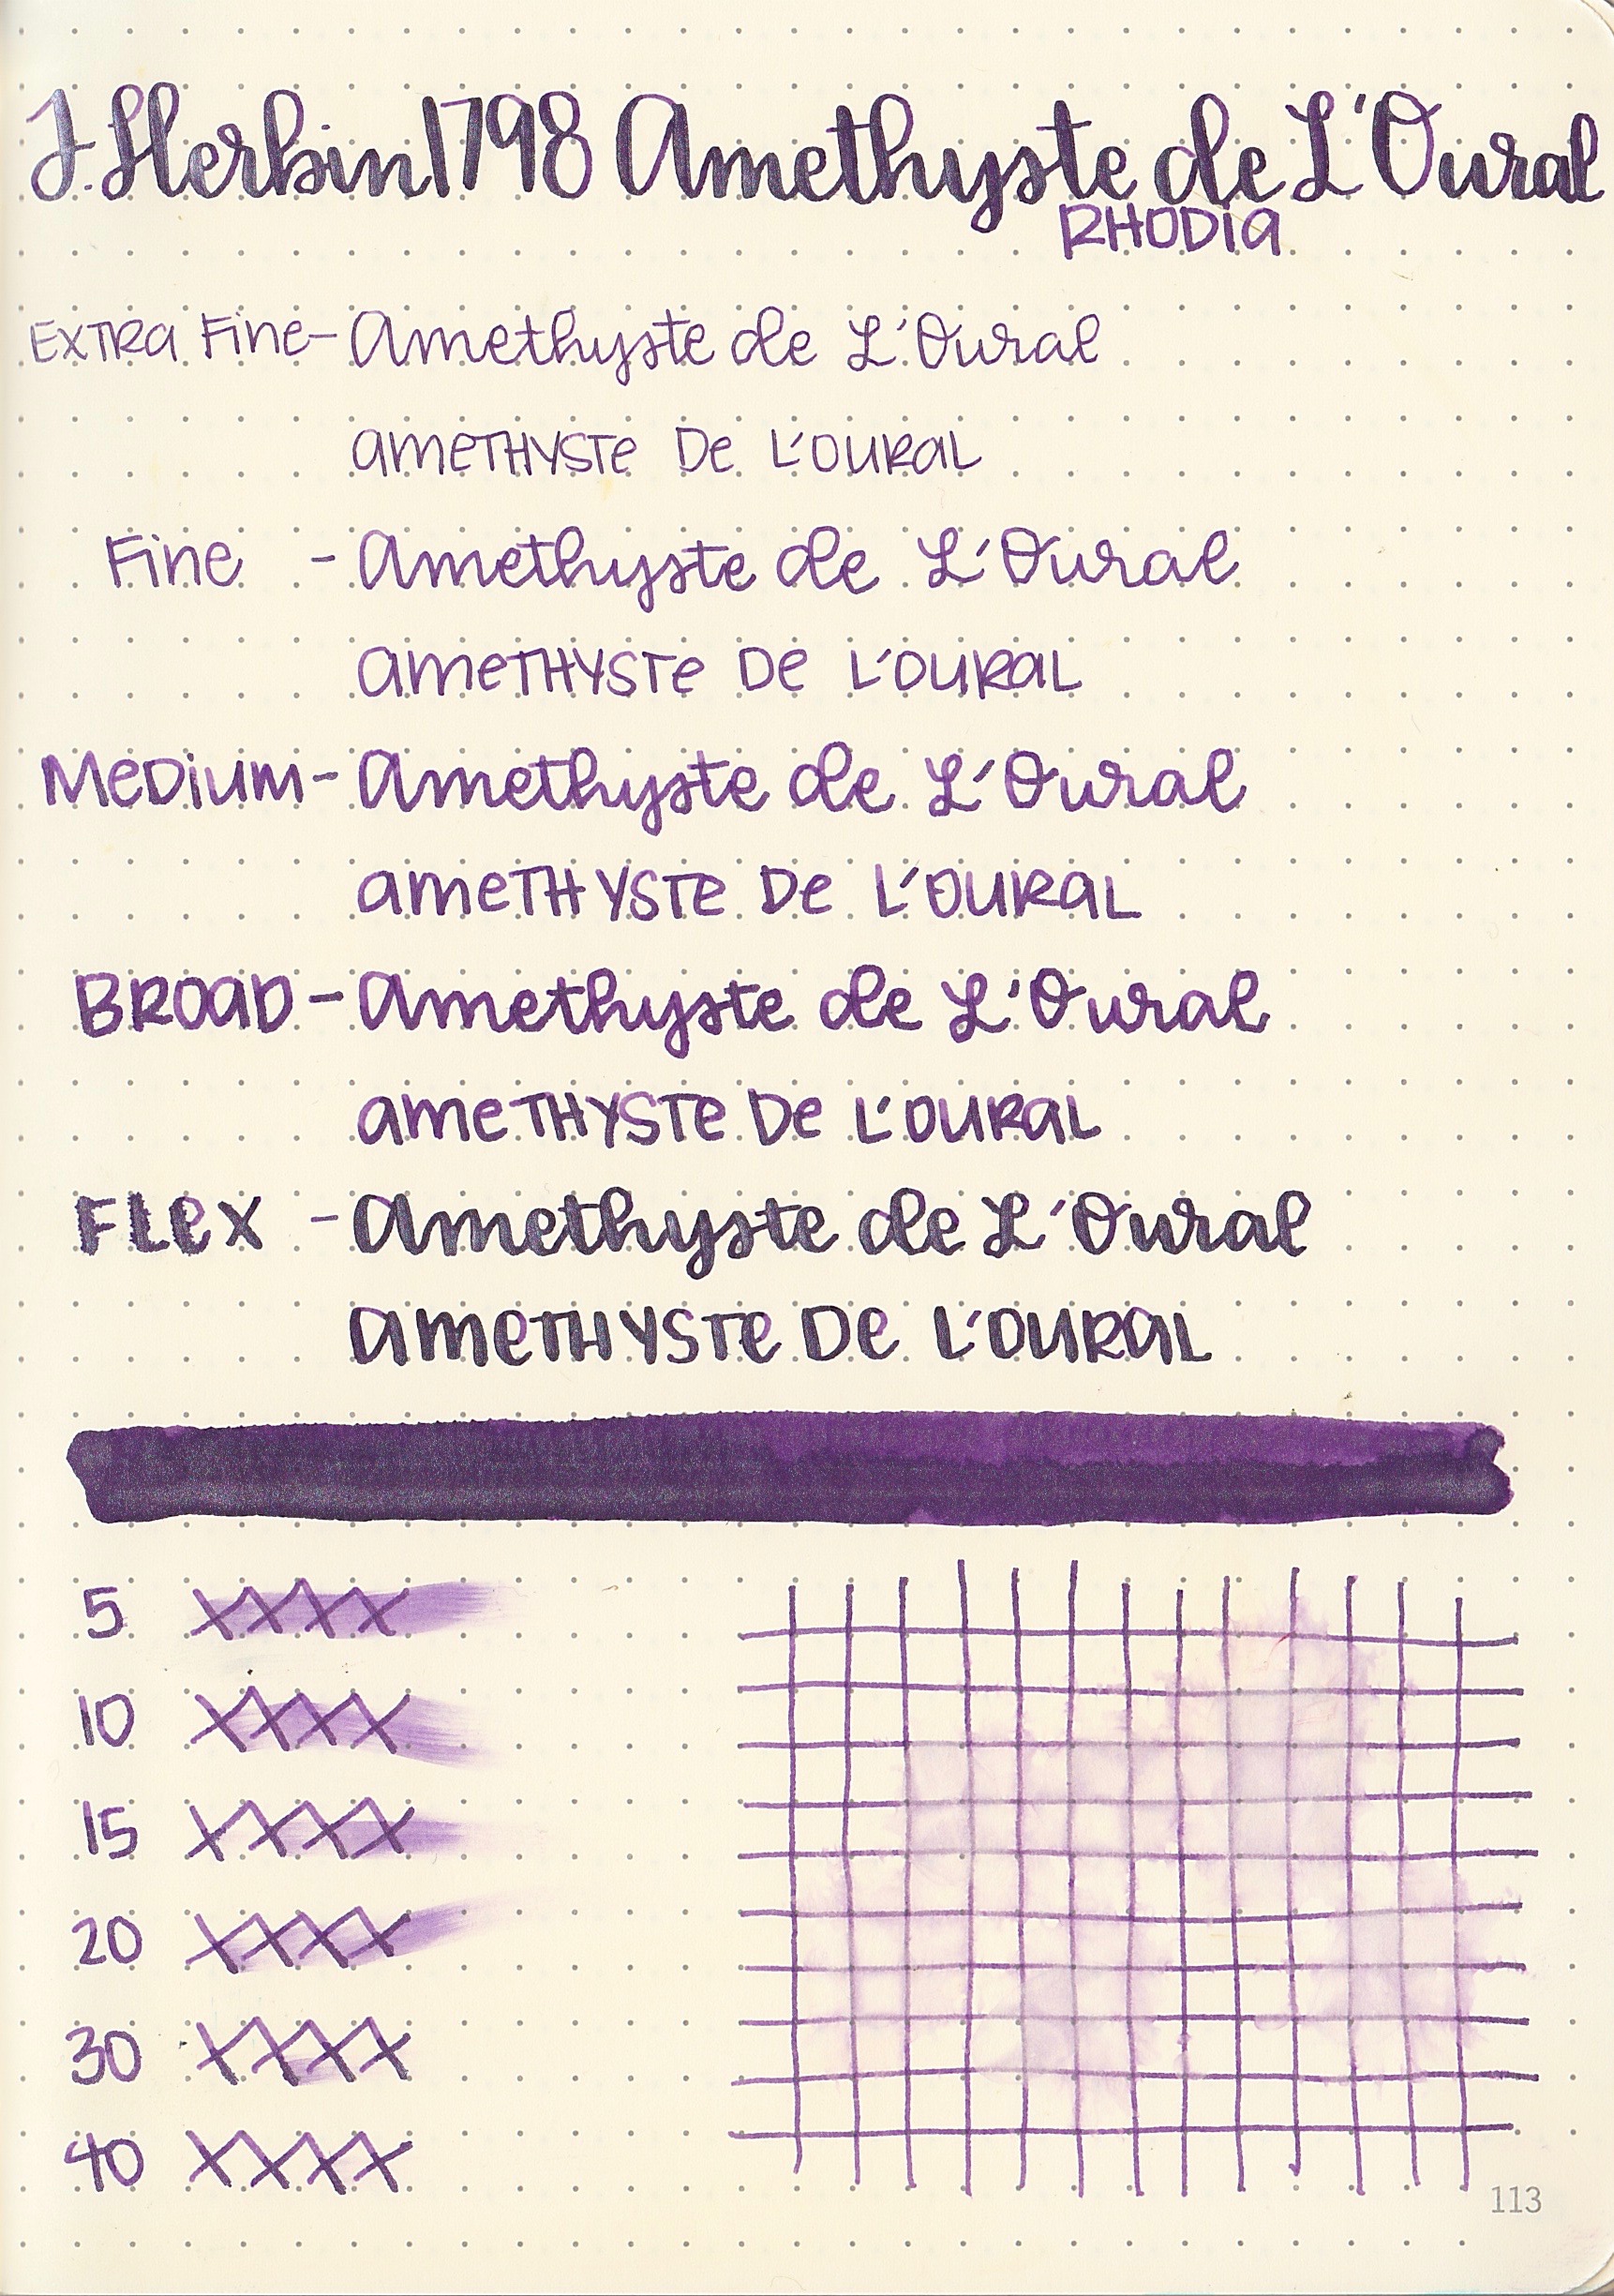 J. Herbin 1798 Amethyste de L'Oural
RHODIA
EXTRA FINE - Amethyste de L'Oural
AMETHYSTE DE L'OURAL
FINE - Amethyste de L'Oural
AMETHYSTE DE L'OURAL
MEDIUM - Amethyste de L'Oural
AMETHYSTE DE L'OURAL
BROAD - Amethyste de L'Oural
AMETHYSTE DE L'OURAL
FLEX - Amethyste de L'Oural
AMETHYSTE DE L'OURAL
5 XXXX
10 XXXX
15 XXXX
20 XXXX
30 XXXX
40 XXXX
113